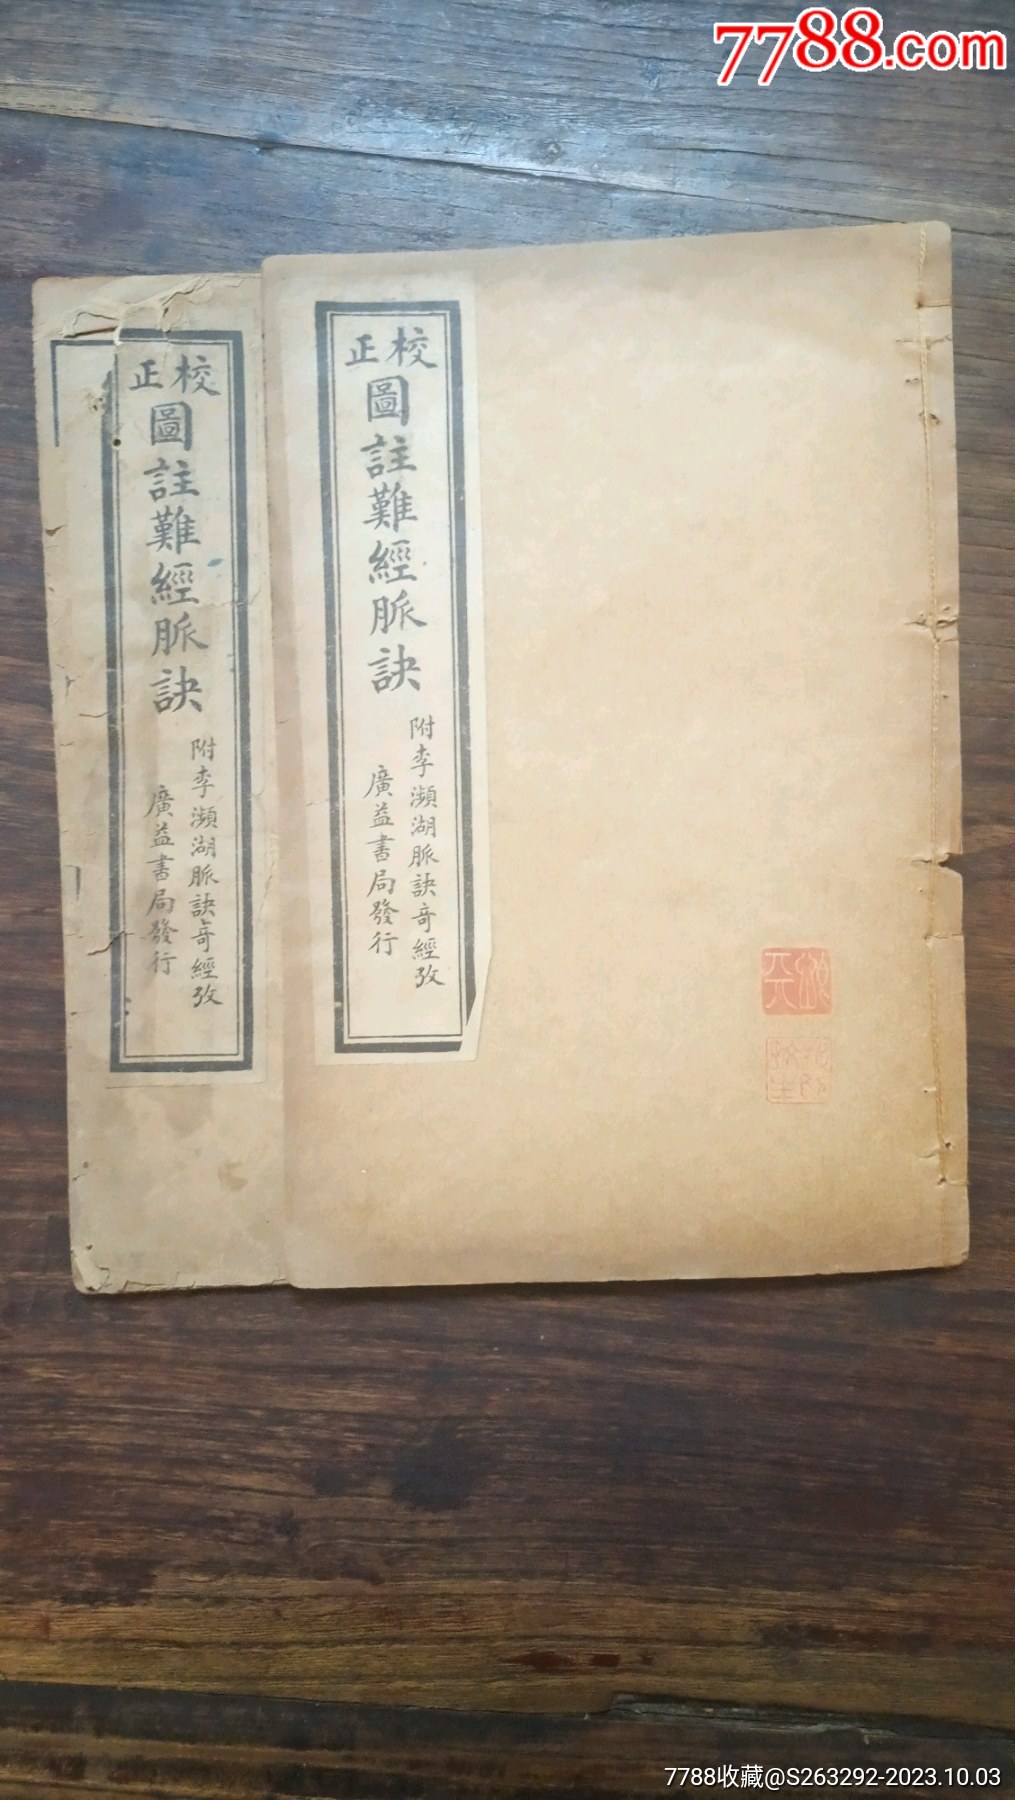 7788.com
校正
圖註難經脈訣
附李瀕湖脈訣奇經攷
廣益書局發行
校正
圖註難經脈訣
附李瀕湖脈訣奇經攷
廣益書局發行
7788收藏@S263292-2023.10.03